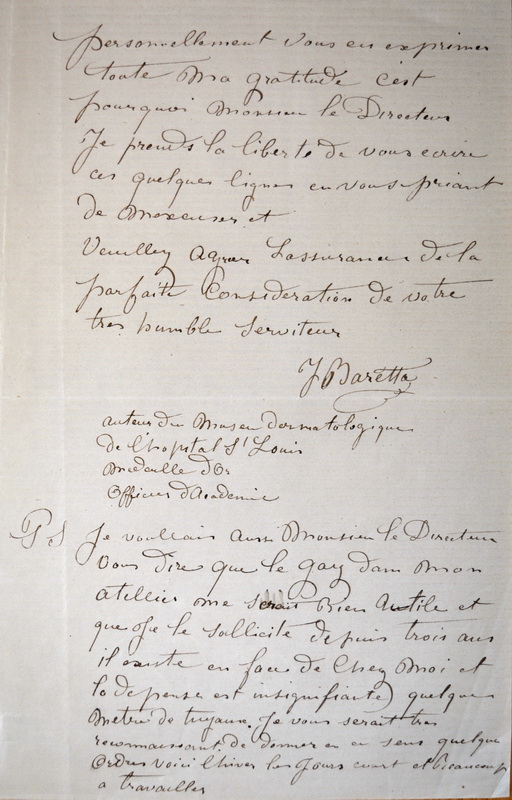 personnellement vous en exprimer
toute Ma gratitude c'est
pourquoi Monsieur le Directeur
Je prends la liberté de vous ecrire
ces quelques lignes en vous priant
de Mexcuser et
Veuilley Agréer Lassurance de la
parfaite Consideration de votre
tres humble Serviteur
J Baretta
auteur du Museu dermatologique
de Lhopital St Louis
Medaille d'Or
Officier d'Academie
PS Je voullais aussi Monsieur le Directeur
vous dire que le gay dans Mon
atellier me serait Bien Autile et
que je le sollicite depuis trois ans
il existe en face de Chez Moi et
la depense est insignifiante) quelque
Metre de tuyaux. Je vous serait tres
reconnaissant de donner en ce sens quelque
Ordres voici l'hiver les Jours court et Beaucoup
a travailler